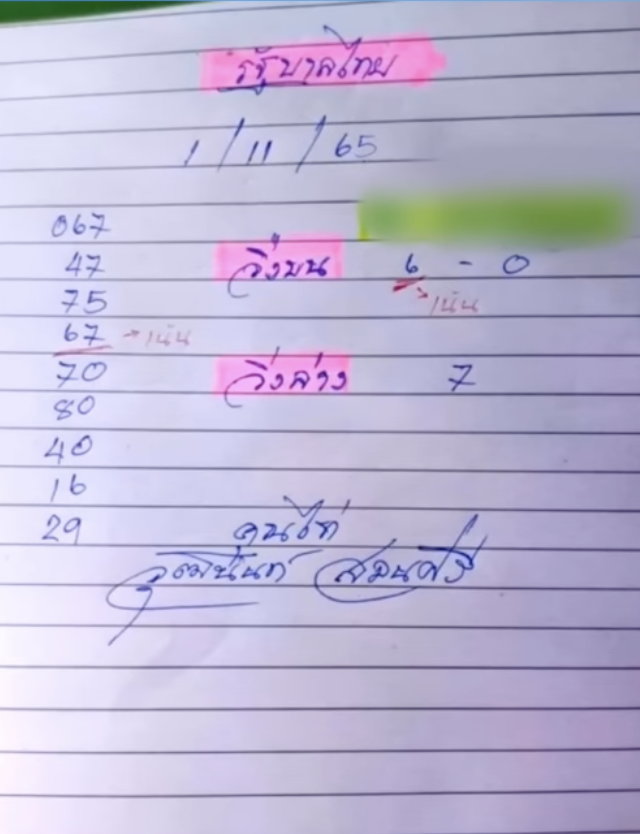 รัฐบาลไทย
1 / 11 / 65
067
47 วิ่งบน 6 - 0
75 เน้น
67 → เน้น
70 วิ่งล่าง 7
80
40
16
29